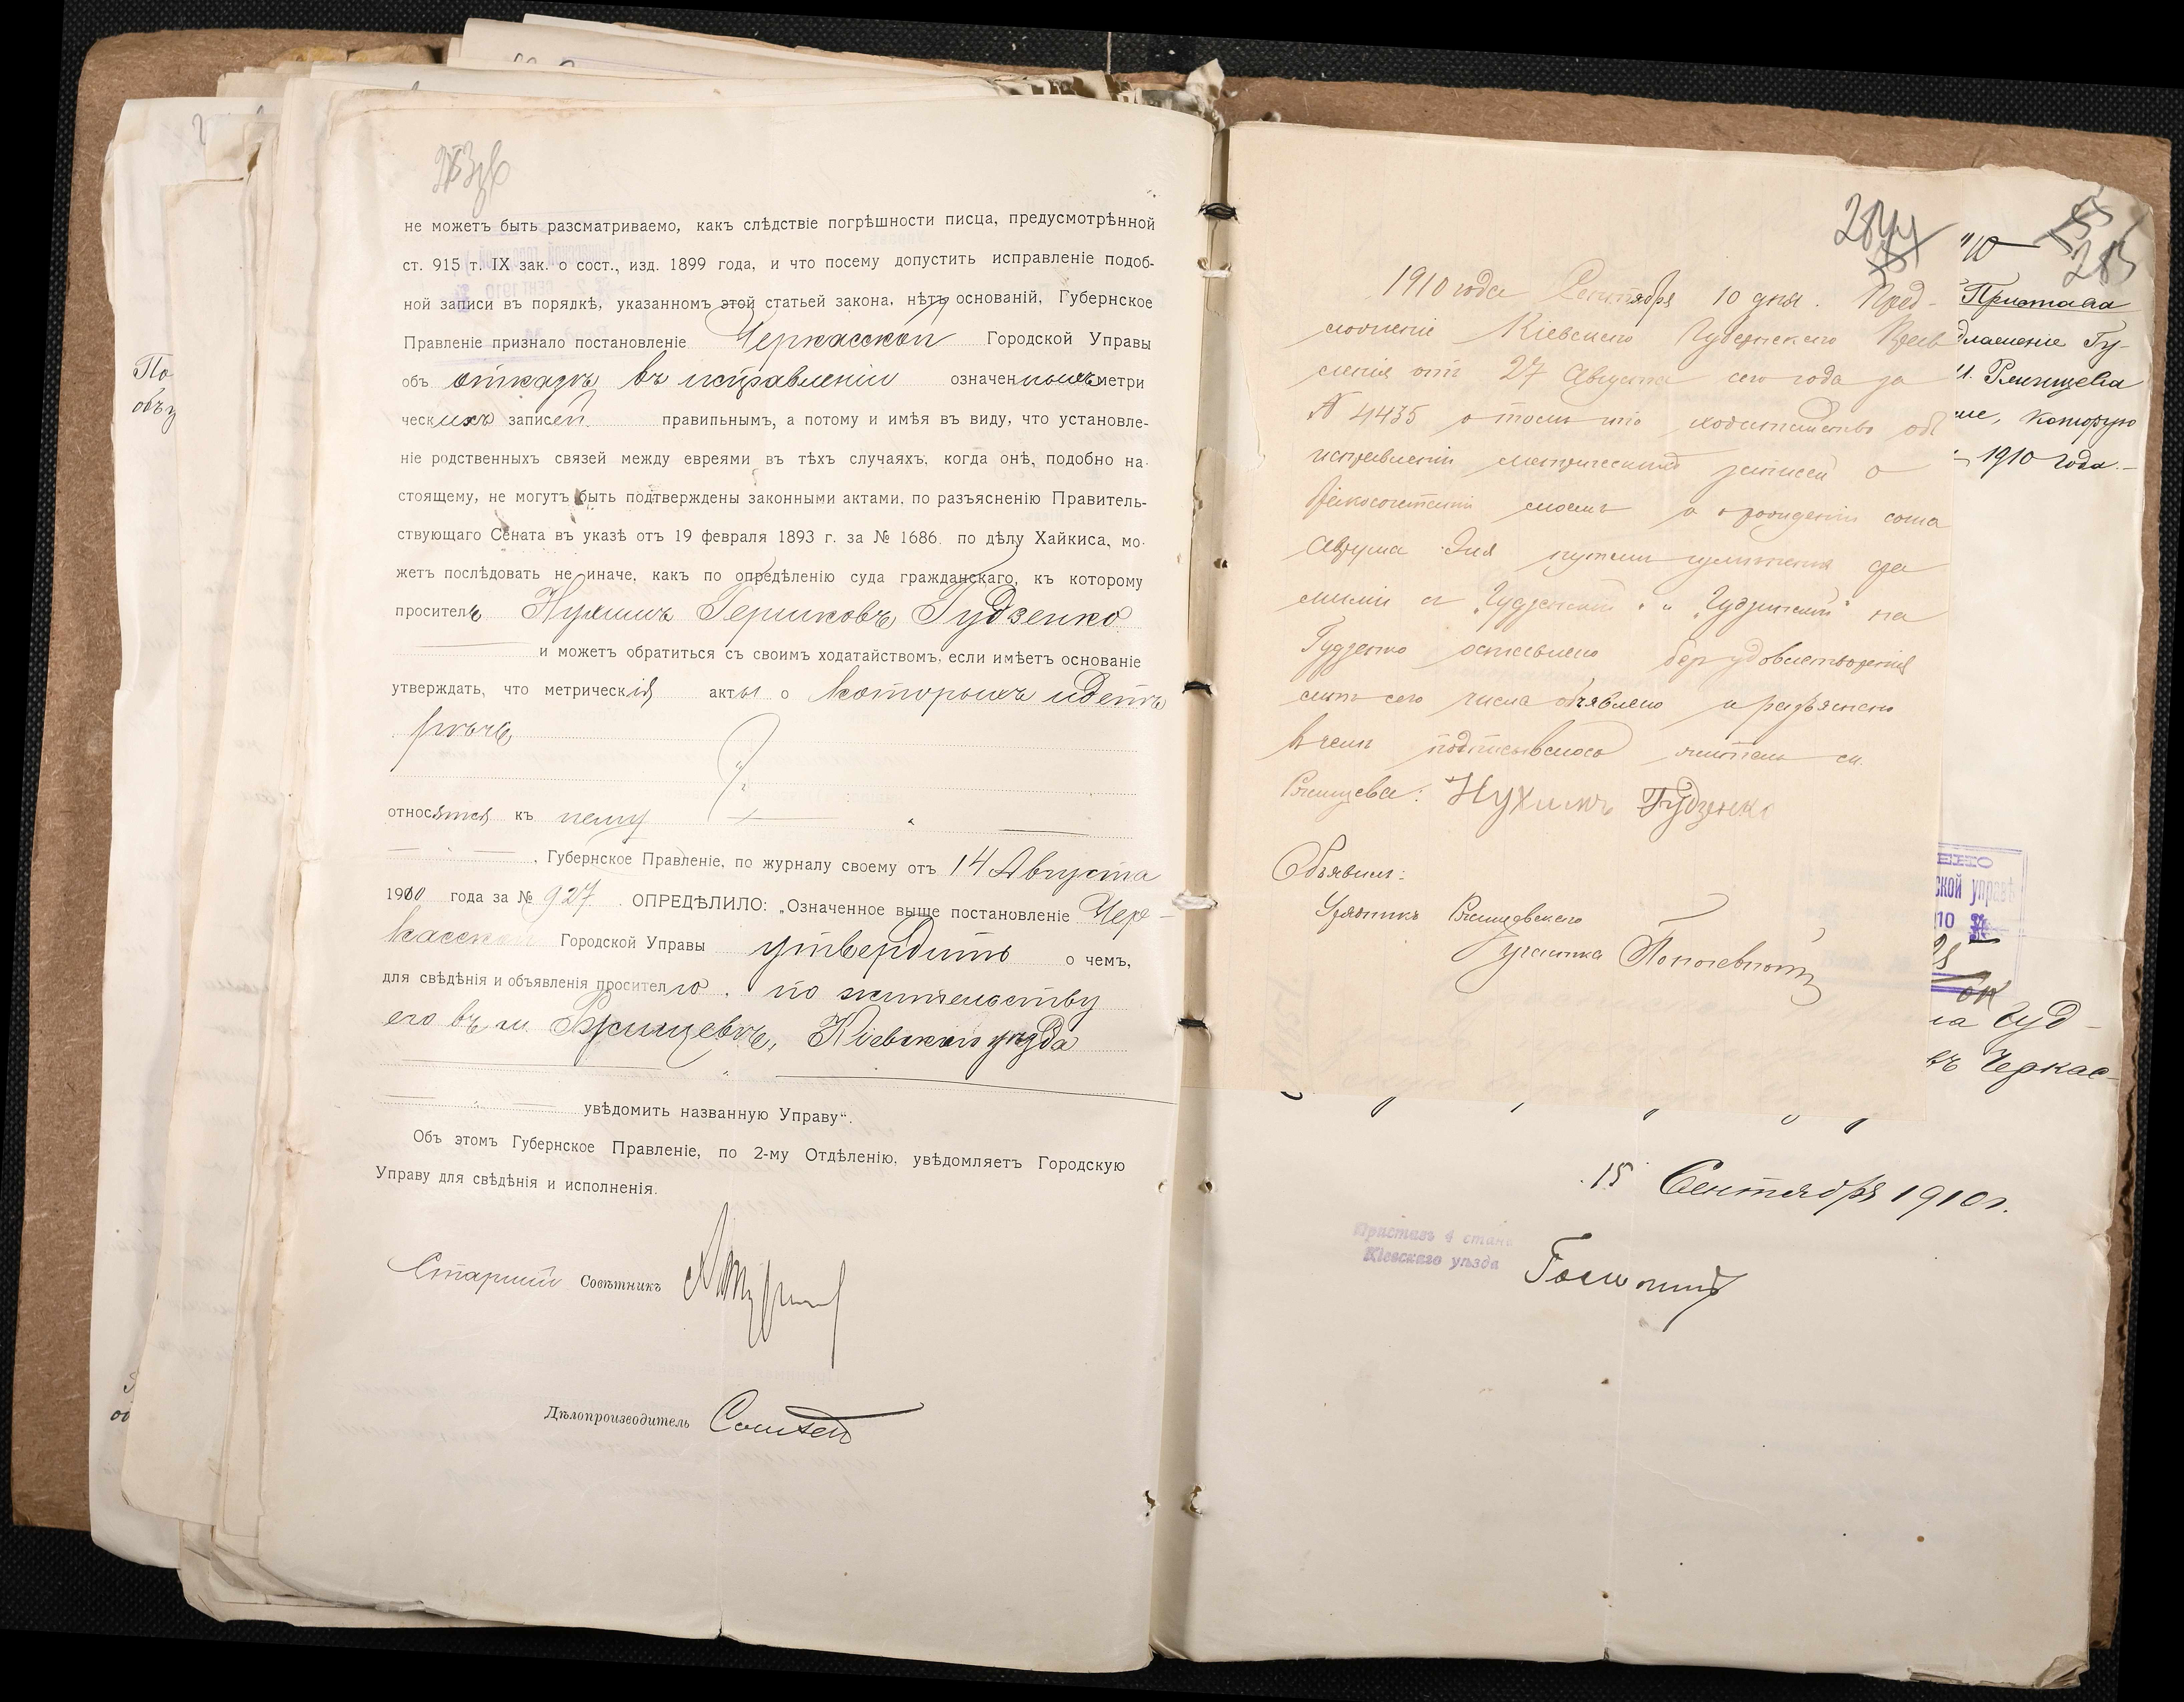 не можетъ быть разсматриваемо, какъ слѣдствіе погрѣшности писца, предусмотрѣнной
ст. 915 т. IX зак. о сост., изд. 1899 года, и что посему допустить исправленіе подоб-
ной записи въ порядкѣ, указанномъ этой статьей закона, нѣтъ основаній, Губернское
Правленіе признало постановленіе Черкасской Городской Управы
объ отказѣ въ исправленіи означенныхъ метри
ческихъ записей правильнымъ, а потому и имѣя въ виду, что установле-
ніе родственныхъ связей между евреями въ тѣхъ случаяхъ, когда онѣ, подобно на-
стоящему, не могутъ быть подтверждены законными актами, по разъясненію Правитель-
ствующаго Сената въ указѣ отъ 19 февраля 1893 г. за № 1686 по дѣлу Хайкиса, мо-
жетъ послѣдовать не иначе, какъ по опредѣленію суда гражданскаго, къ которому
проситель Нухимъ Гершковъ Гудзенко
и можетъ обратиться съ своимъ ходатайствомъ, если имѣетъ основаніе
утверждать, что метрическія акты о которыхъ идетъ
рѣчь
относятся къ нему
, Губернское Правленіе, по журналу своему отъ 14 Августа
1910 года за № 927. ОПРЕДѢЛИЛО: „Означенное выше постановленіе Чер-
касской Городской Управы утвердить о чемъ,
для свѣдѣнія и объявленія просителю, по жительству
его въ м. Ржищевѣ, Кіевскаго уѣзда
увѣдомить названную Управу“.
Объ этомъ Губернское Правленіе, по 2-му Отдѣленію, увѣдомляетъ Городскую
Управу для свѣдѣнія и исполненія.
Старшій Совѣтникъ
Дѣлопроизводитель
284
285
1910 года Сентября 10 дня. Пред-
ложеніе Кіевскаго Губернскаго Прав
ленія отъ 27 Августа сего года за
№ 4435 о томъ что ходатайство объ
исправленіи метрическихъ записей о
бракосочетаніи моемъ и о рожденіи сына
Аврума путемъ измѣненія фа
миліи съ „Гудзенскій“ и „Гудзинскій“ на
Гудзенко оставлено безъ удовлетворенія
мнѣ сего числа объявлено и разъяснено
въ чемъ подписываюсь житель м.
Ржищева: Нухимъ Гудзенко
Объявилъ:
Урядникъ Ржищевскаго
участка
Пристава
Ржищева
которую
1910 года.
ской управѣ
10
Гуд-
въ Черкас-
15 Сентября 1910 г.
Приставъ 4 стана
Кіевскаго уѣзда